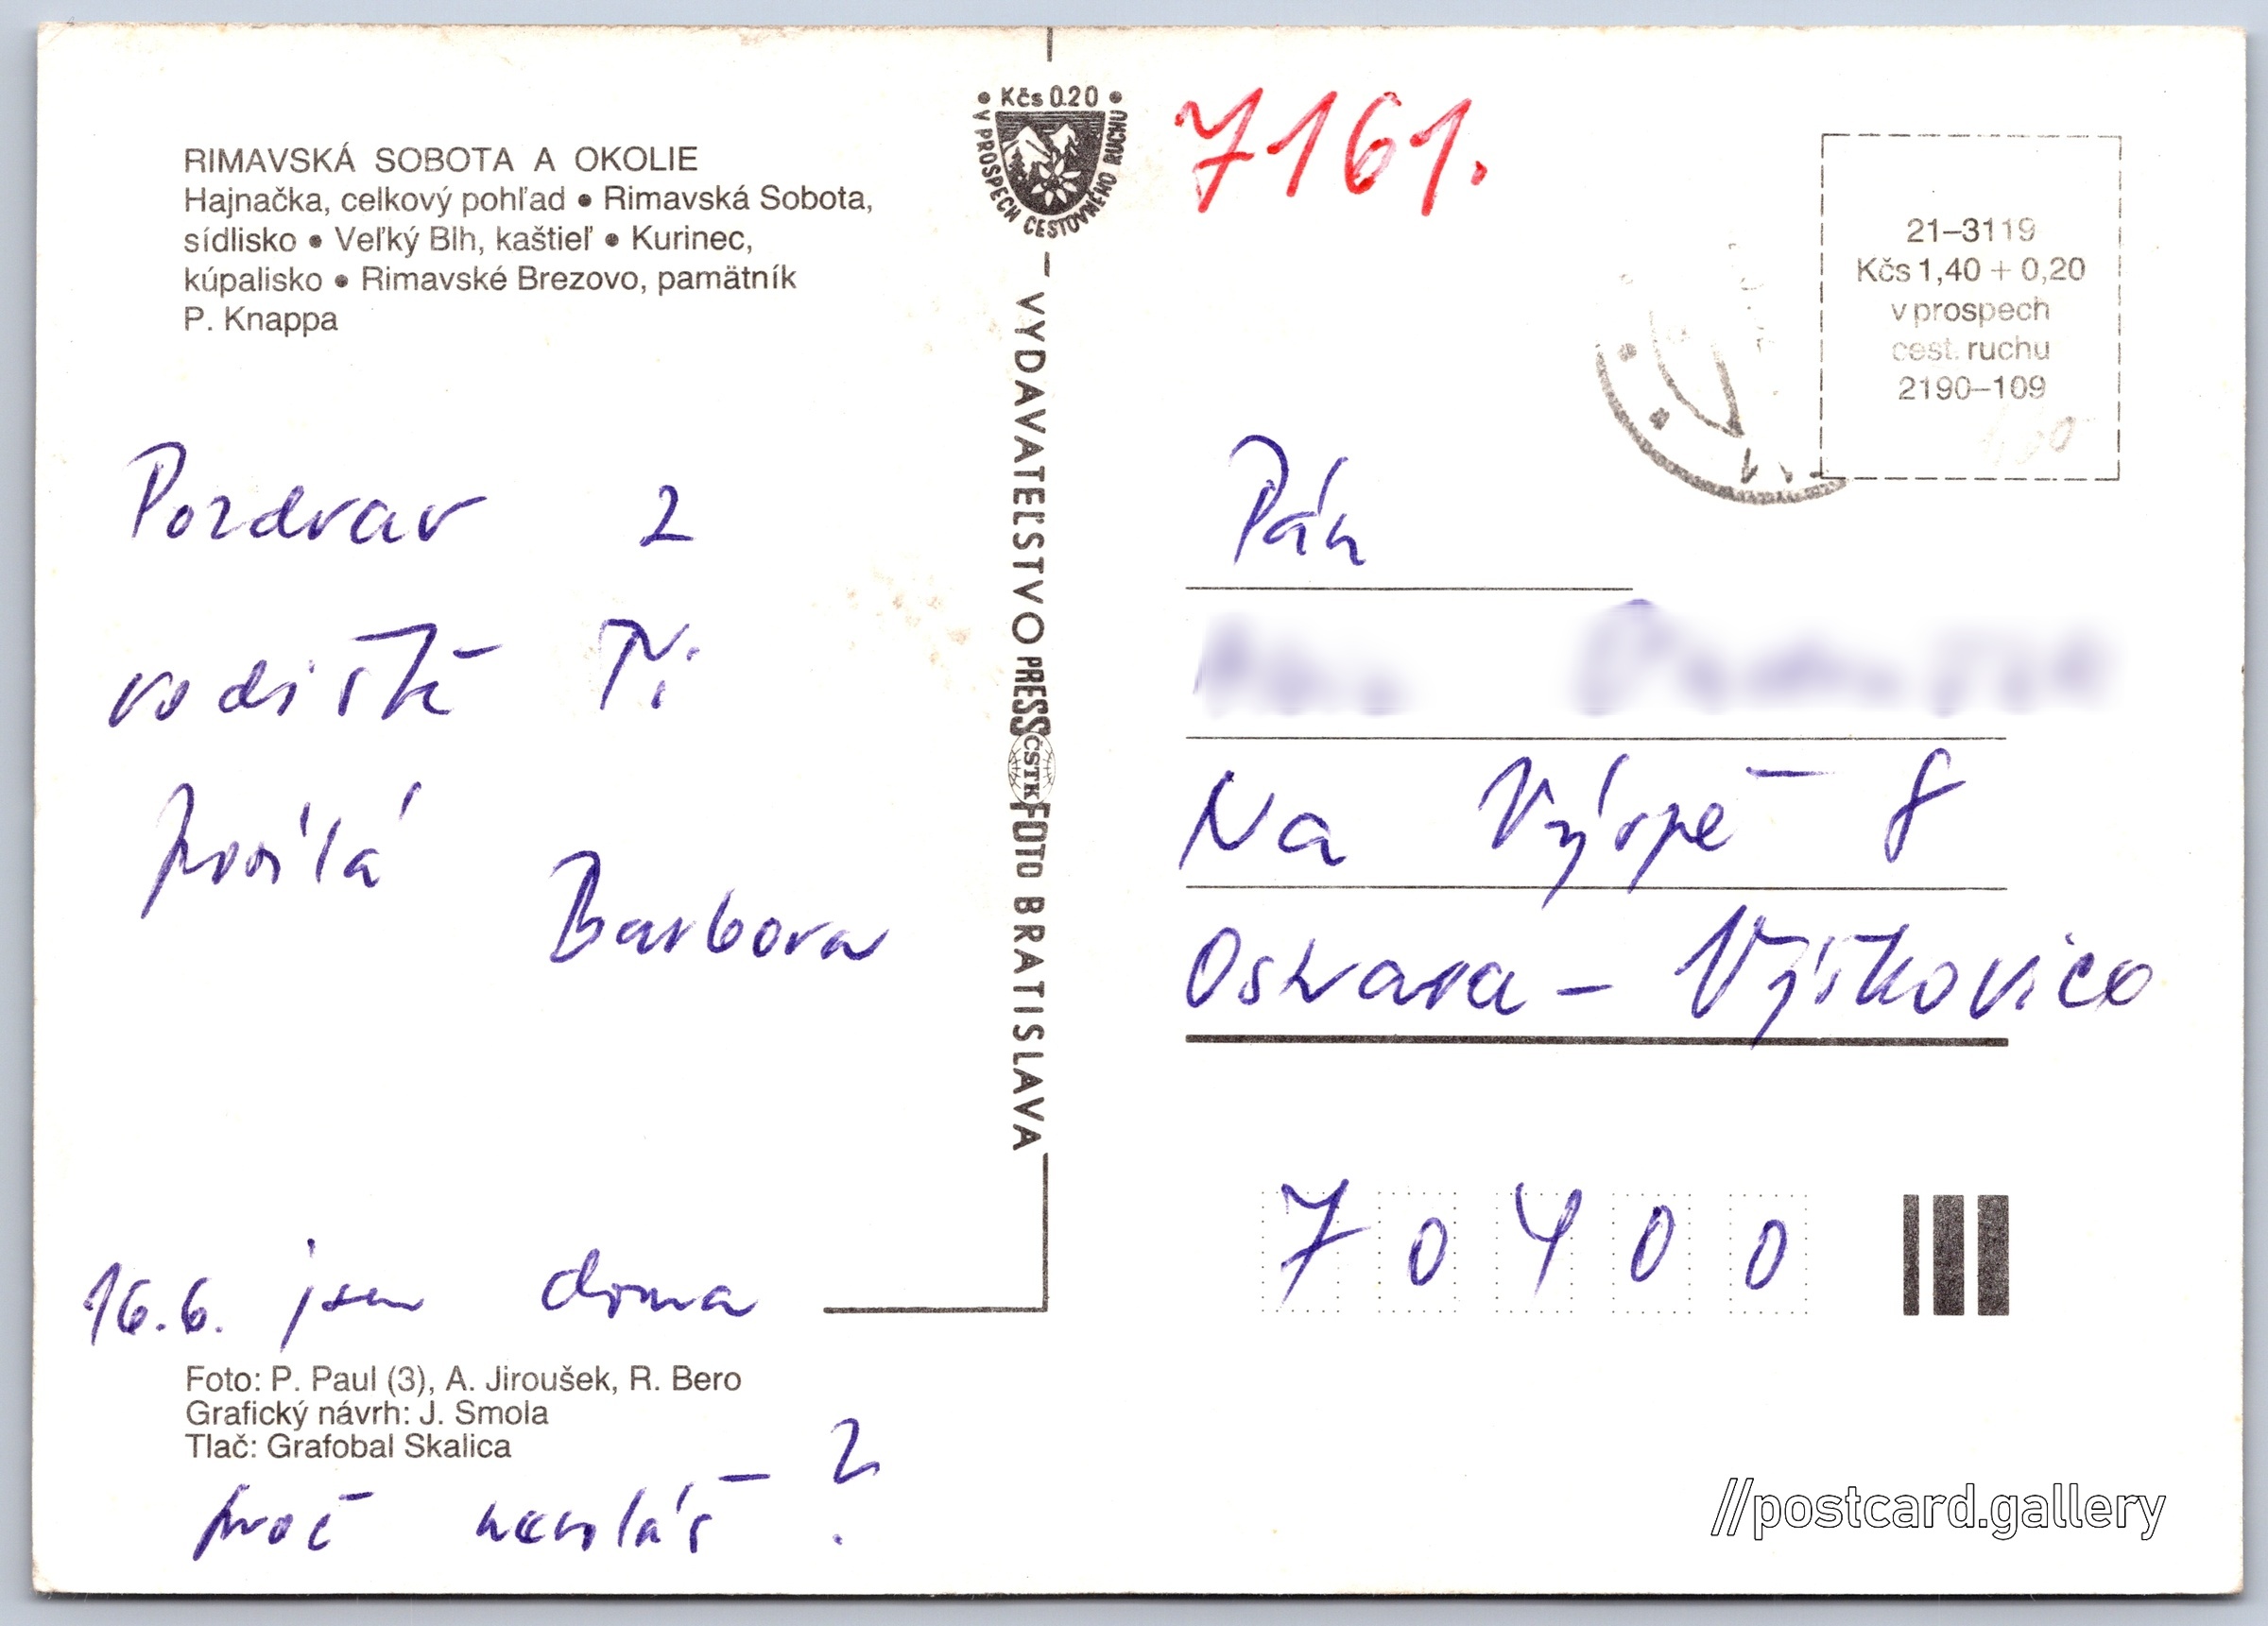 RIMAVSKÁ SOBOTA A OKOLIE
Hajnačka, celkový pohľad • Rimavská Sobota,
sídlisko • Veľký Blh, kaštieľ • Kurinec,
kúpalisko • Rimavské Brezovo, pamätník
P. Knappa
Pozdrav z
posílá
Barbora
16.6. jsem doma
Foto: P. Paul (3), A. Jiroušek, R. Bero
Grafický návrh: J. Smola
Tlač: Grafobal Skalica
proč nevoláš ?
• Kčs 0.20 •
V PROSPECH CESTOVNÉHO RUCHU
VYDAVATEĽSTVO PRESSFOTO BRATISLAVA
ČSTK
7161.
21–3119
Kčs 1,40 + 0,20
v prospech
cest. ruchu
2190–109
Pán
Na Výspě 8
Ostrava – Výškovice
70400
//postcard.gallery